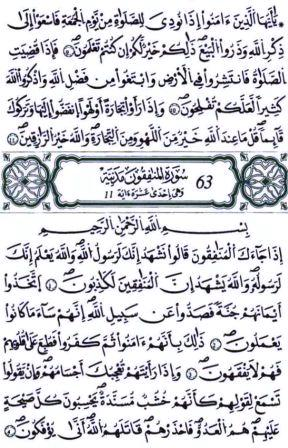 يَٰٓأَيُّهَا ٱلَّذِينَ ءَامَنُوٓا۟ إِذَا نُودِىَ لِلصَّلَوٰةِ مِن يَوْمِ ٱلْجُمُعَةِ فَٱسْعَوْا۟ إِلَىٰ
ذِكْرِ ٱللَّهِ وَذَرُوا۟ ٱلْبَيْعَ ۚ ذَٰلِكُمْ خَيْرٌ لَّكُمْ إِن كُنتُمْ تَعْلَمُونَ ٩ فَإِذَا قُضِيَتِ
ٱلصَّلَوٰةُ فَٱنتَشِرُوا۟ فِى ٱلْأَرْضِ وَٱبْتَغُوا۟ مِن فَضْلِ ٱللَّهِ وَٱذْكُرُوا۟ ٱللَّهَ
كَثِيرًا لَّعَلَّكُمْ تُفْلِحُونَ ١٠ وَإِذَا رَأَوْا۟ تِجَٰرَةً أَوْ لَهْوًا ٱنفَضُّوٓا۟ إِلَيْهَا وَتَرَكُوكَ
قَآئِمًا ۚ قُلْ مَا عِندَ ٱللَّهِ خَيْرٌ مِّنَ ٱللَّهْوِ وَمِنَ ٱلتِّجَٰرَةِ ۚ وَٱللَّهُ خَيْرُ ٱلرَّٰزِقِينَ ١١
سُورَةُ ٱلْمُنَٰفِقُونَ مَدَنِيَّة 63
وهى إحدى عشرة ءاية 11
بِسْمِ ٱللَّهِ ٱلرَّحْمَٰنِ ٱلرَّحِيمِ
إِذَا جَآءَكَ ٱلْمُنَٰفِقُونَ قَالُوا۟ نَشْهَدُ إِنَّكَ لَرَسُولُ ٱللَّهِ ۗ وَٱللَّهُ يَعْلَمُ إِنَّكَ
لَرَسُولُهُۥ وَٱللَّهُ يَشْهَدُ إِنَّ ٱلْمُنَٰفِقِينَ لَكَٰذِبُونَ ١ ٱتَّخَذُوٓا۟
أَيْمَٰنَهُمْ جُنَّةً فَصَدُّوا۟ عَن سَبِيلِ ٱللَّهِ ۚ إِنَّهُمْ سَآءَ مَا كَانُوا۟
يَعْمَلُونَ ٢ ذَٰلِكَ بِأَنَّهُمْ ءَامَنُوا۟ ثُمَّ كَفَرُوا۟ فَطُبِعَ عَلَىٰ قُلُوبِهِمْ
فَهُمْ لَا يَفْقَهُونَ ٣ وَإِذَا رَأَيْتَهُمْ تُعْجِبُكَ أَجْسَامُهُمْ ۖ وَإِن يَقُولُوا۟
تَسْمَعْ لِقَوْلِهِمْ ۖ كَأَنَّهُمْ خُشُبٌ مُّسَنَّدَةٌ ۖ يَحْسَبُونَ كُلَّ صَيْحَةٍ
عَلَيْهِمْ ۚ هُمُ ٱلْعَدُوُّ فَٱحْذَرْهُمْ ۚ قَٰتَلَهُمُ ٱللَّهُ ۖ أَنَّىٰ يُؤْفَكُونَ ٤